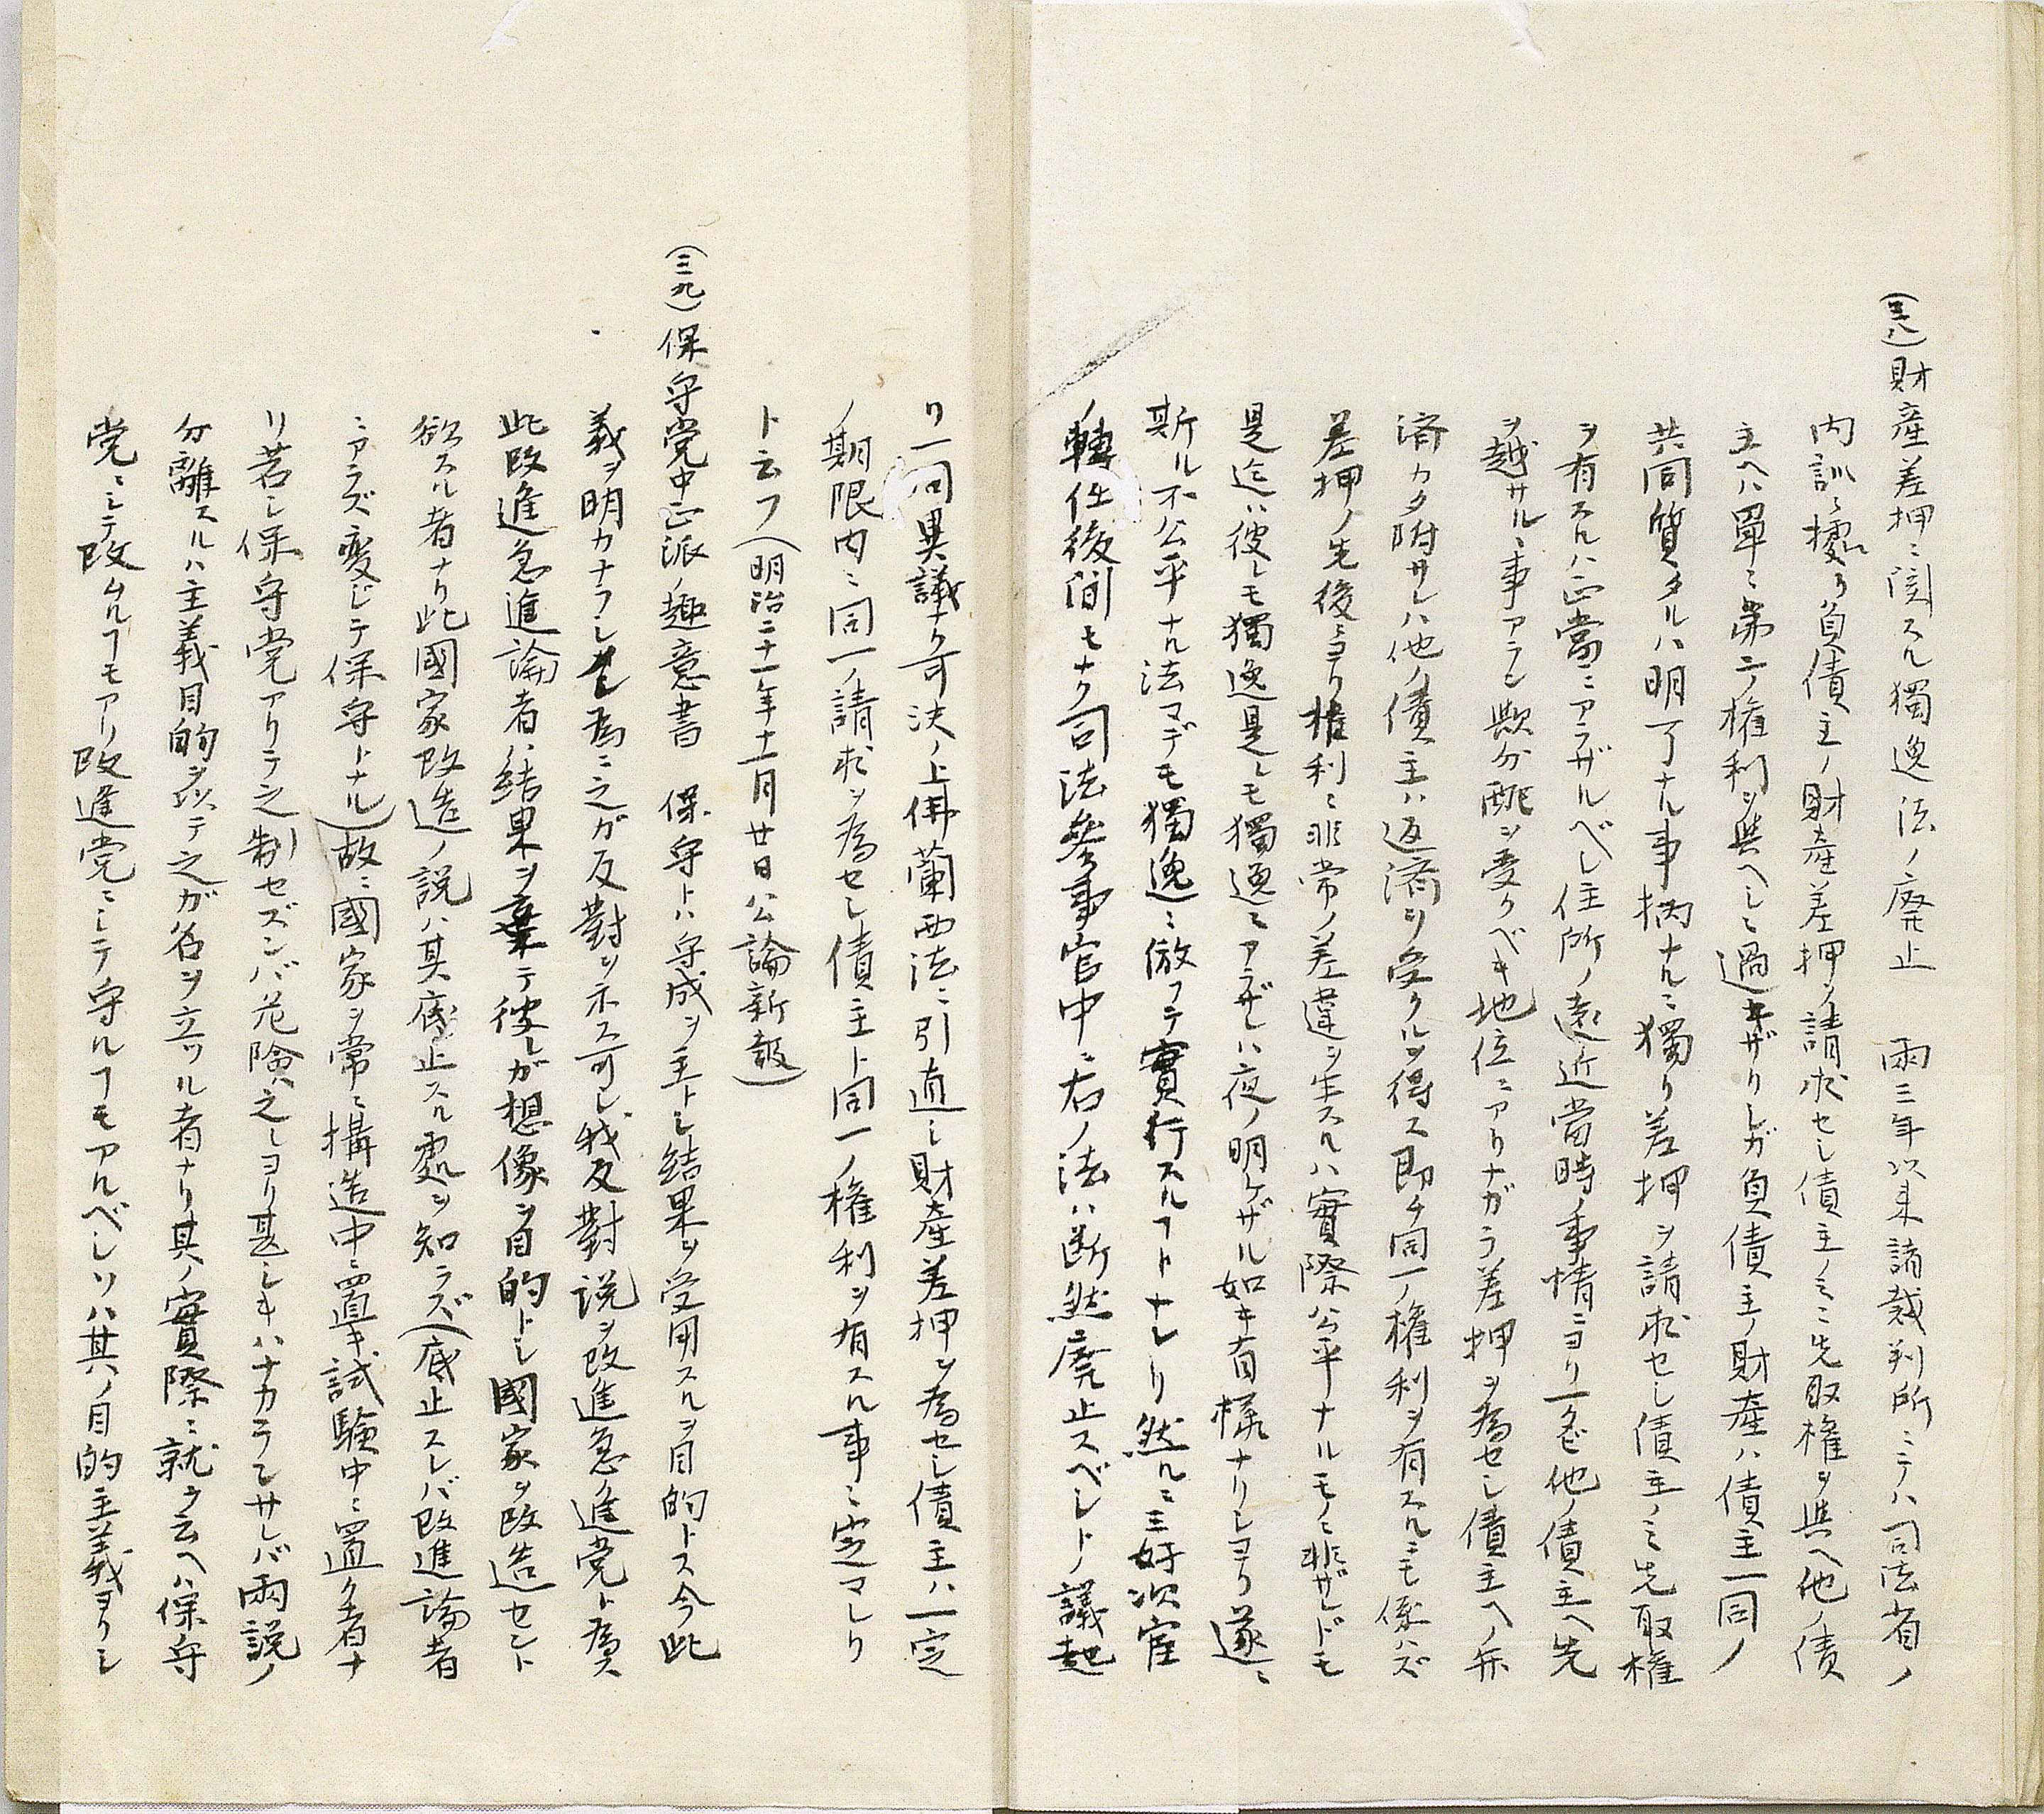 (三八)財産差押ニ関スル獨逸法ノ廃止　両三年以来諸裁判所ニテハ司法省ノ
内訓ニ據リ負債主ノ財産差押ヲ請求セシ債主ノミニ先取権ヲ與ヘ他ノ債
主ヘハ單ニ第二ノ権利ヲ與ヘシニ過キザリシガ負債主ノ財産ハ債主一同ノ
共同質タルハ明了ナル事柄ナルニ獨リ差押ヲ請求セシ債主ノミ先取権
ヲ有スルハ正當ニアラザルベシ住所ノ遠近當時ノ事情ニヨリ一名他ノ債主ヘ先
ヲ越サルヽ事アラン歟分配ヲ受クベキ地位ニアリナガラ差押ヲ為セシ債主ヘノ弁
済カタ附サレハ他ノ債主ハ返済ヲ受クルヲ得ス即チ同一ノ権利ヲ有スルニモ係ハズ
差押ノ先後ニヨリ権利ニ非常ノ差違ヲ生スルハ實際公平ナルモノニ非ザレドモ
是迄ハ彼レモ獨逸是レモ獨逸ニアラザレハ夜ノ明ケザル如キ有様ナリシヨリ遂ニ
斯ル不公平ナル法マデモ獨逸ニ倣フテ實行スルヿトナレリ然ルニ三好次官
ノ轉任後間モナク司法參事官中ニ右ノ法ハ断然廃止スベシトノ議起
リ一同異議ナク可決ノ上佛蘭西法ニ引直シ財産差押ヲ為セシ債主ハ一定
ノ期限内ニ同一ノ請求ヲ為セシ債主ト同一ノ権利ヲ有スル事ニ定マレリ
ト云フ(明治二十一年十一月廿日公論新報)
(三九)保守党中正派ノ趣意書　保守トハ守成ヲ主トシ結果ヲ受用スルヲ目的トス今此
義ヲ明カナラシメン為ニ之ガ反對ヲ示ス可シ我反對説ヲ改進急進党ト為ス
此改進急進論者ハ結果ヲ棄テ彼レガ想像ヲ目的トシ國家ヲ改造セント
欲スル者ナリ此國家改造ノ説ハ其底止スル處ヲ知ラズ(底止スレバ改進論者
ニアラズ変ジテ保守トナル)故ニ國家ヲ常ニ搆造中ニ置キ試験中ニ置ク者ナ
リ若シ保守党アリテ之ヲ制セズンバ危険之レヨリ甚シキハナカラン サレバ両説ノ
分離スルハ主義目的ヲ以テ之ガ名ヲ立ツル者ナリ其ノ實際ニ就テ云ヘハ保守
党ニシテ改ムルヿモアリ改進党ニシテ守ルヿモアルベシソハ其ノ目的主義ヨリシ